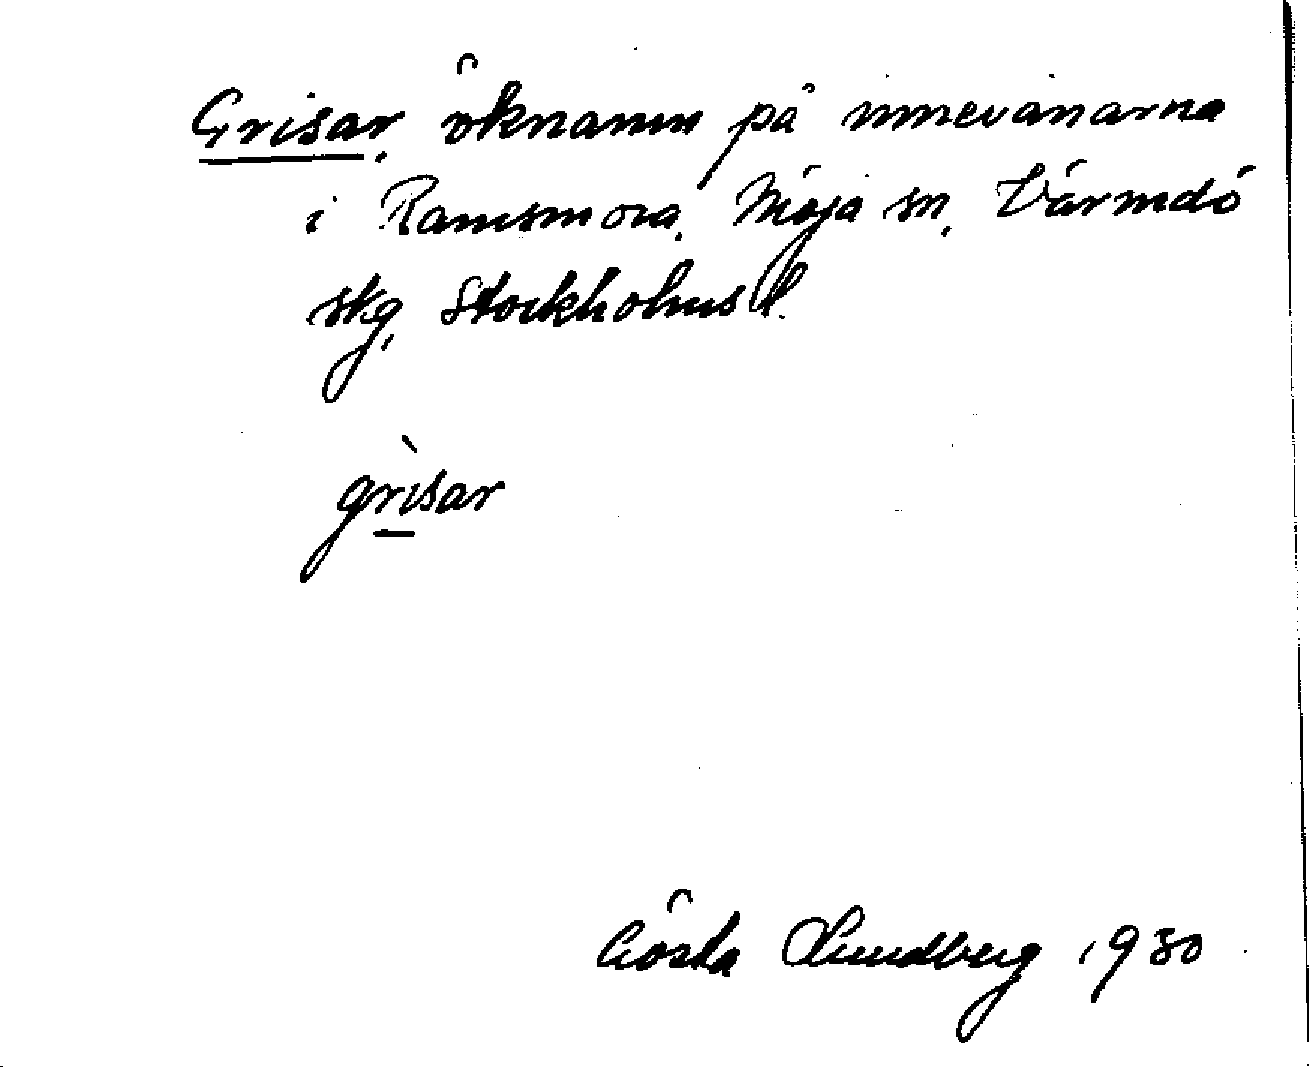 Grisar, öknamn på innevånarna
i Ramsmora, Möja sn, Värmdö
skg, Stockholms l.
grìsar
Gösta Lundberg 1930